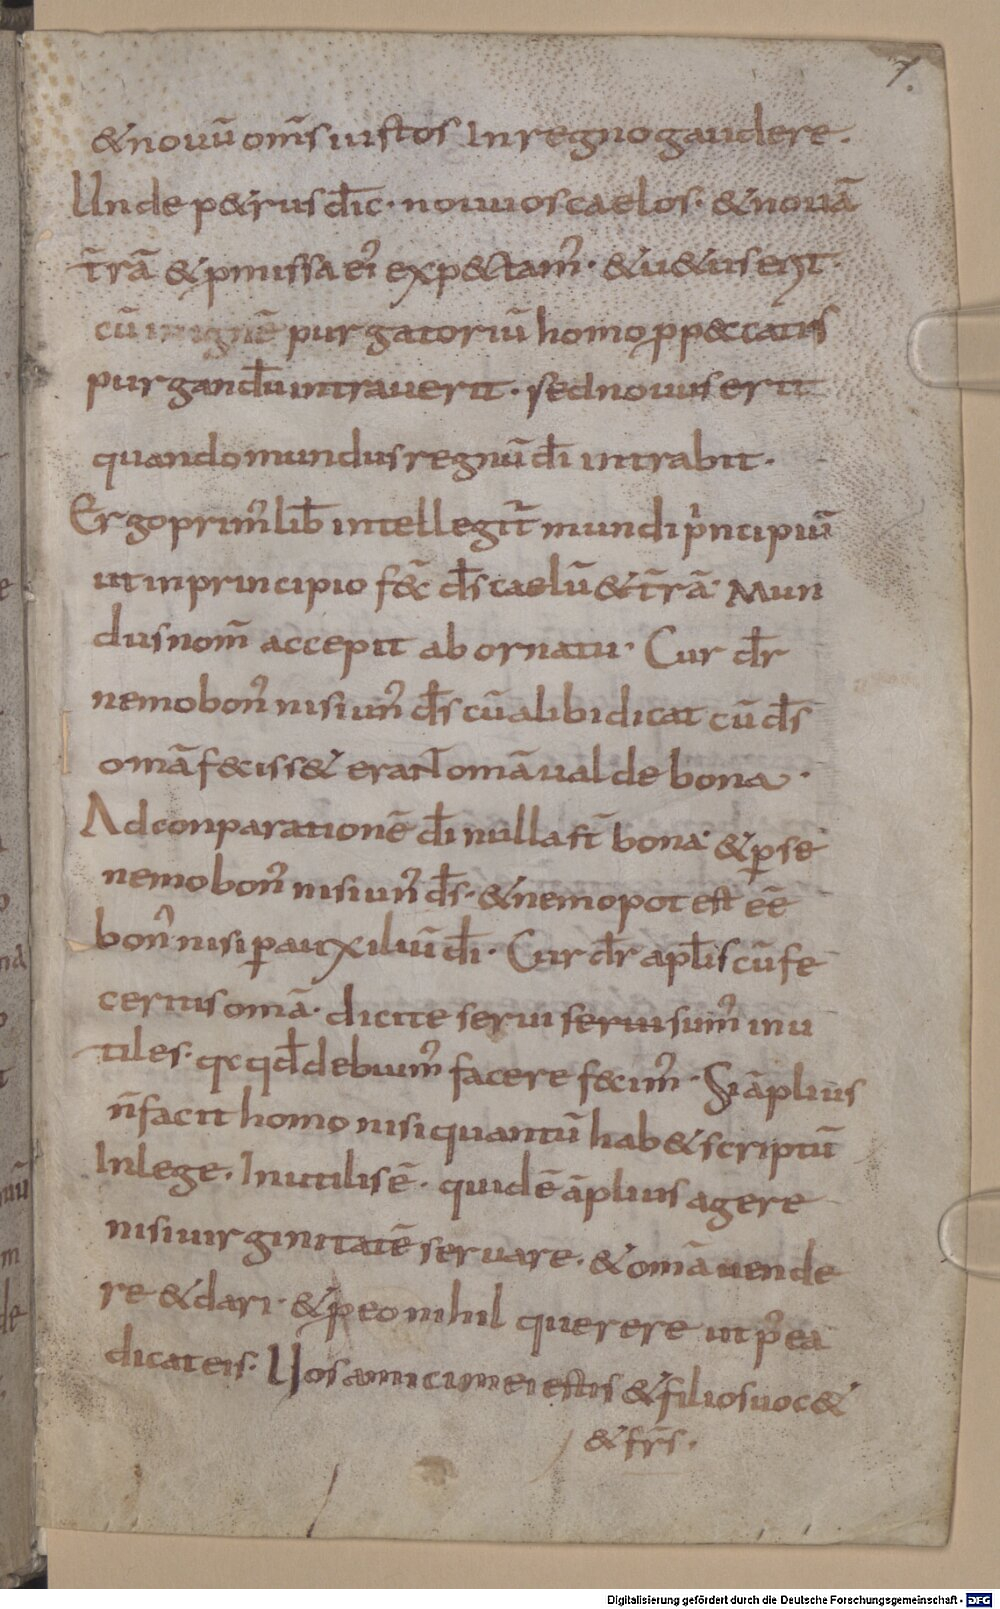 7.
&nouū om̄s iustos Inregnogaudere.
Unde p&rus dīc. nouuoscaelos. &nouā
t̄rā &pmissa ei' exp&tam'. &u&us erit
cū in ignē purgatoriū homo pp&ccatis
purgandū intrauerit. sednouus erit
quandomundusregnū dī intrabit.
Ergoprim' lib̄ intellegit̄ mundi principiū
utinprincipio fec̄ d̄s caelū &t̄rā. Mun
dusnom̄ accepit ab ornatu. Cur dr̄
nemobon' nisi un' d̄s cū alibi dicat cū d̄s
omā feciss& erant omā ualde bona.
Adconparationē dī nulla st̄ bona &pse
nemobon' nisi un' d̄s. &nemopotest eē
bon' nisi pauxiliū dī. Cur dr̄ apl̄is cū fe
ceritis omā. dicite serui seruisum' inu
tiles. q qd̄ debuim' facere fecim'. Si āplius
n̄ facit homo nisi quantū hab& scriptū
Inlege. Inutilis ē. quid ē āplius agere
nisi uirginitatē seruare. & omā uende
re &dari. &peo nihil querere ut p'ea
dicateis. Uos amici mei estis &filiosuoc&
&fr̄s.
Digitalisierung gefördert durch die Deutsche Forschungsgemeinschaft - DFG